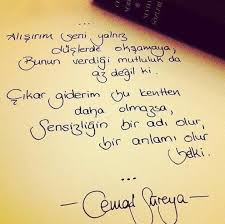 ...
Alışırım seni yalnız
düşlerde okşamaya,
Bunun verdiği mutluluk da
az değil ki.
Çıkar giderim bu kentten
daha olmazsa,
Sensizliğin bir adı olur,
bir anlamı olur
belki.
...
- Cemal Süreya -